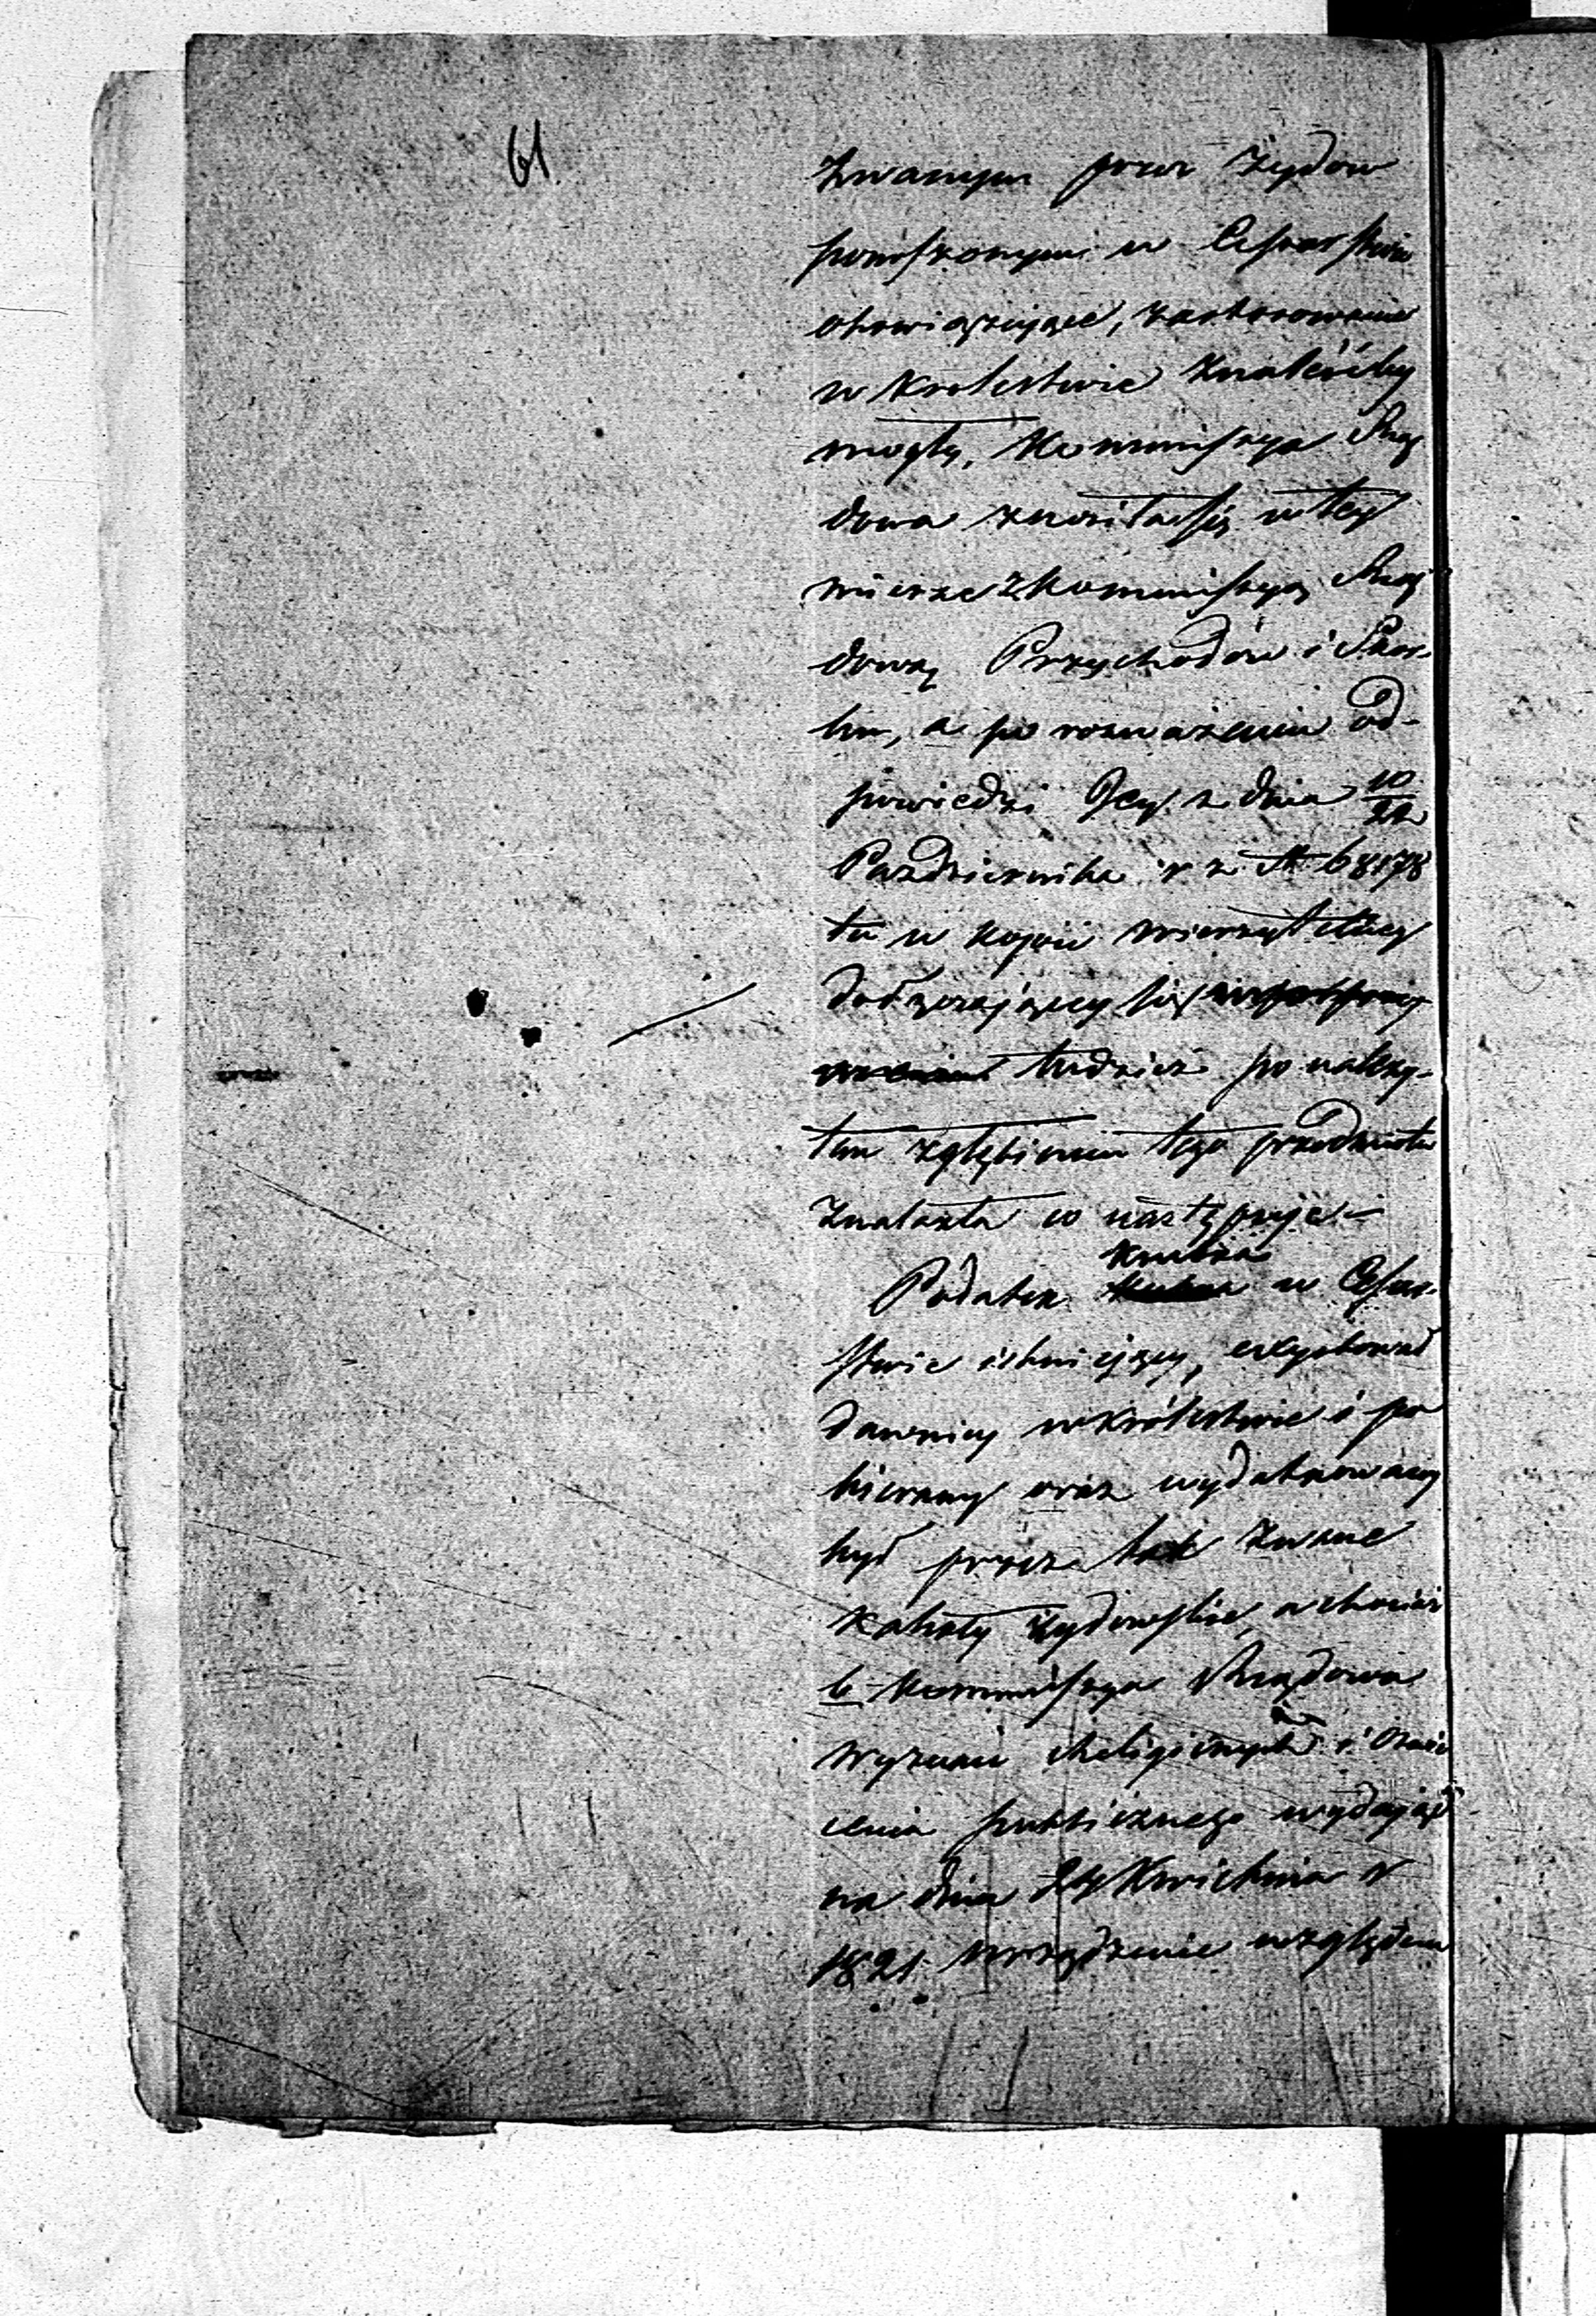 61
zwanym przez Żydów
ponoszonym w Cesarstwie
obowiązujące, zastosowanie
w Królestwie znaleźćby
mogły, Kommissya Rzą
dowa znosiła się w tey
mierze z Kommissyą Rzą
dową Przychodów i Skar-
bu, a po rozważeniu od-
powiedzi Jey z dnia 10/22
Października r z № 68178
tu w kopii wierzytelney
dołączającey się
tudzież po należy-
tem zgłębieniu tego przedmiotu
znalazła co następuje:
krubka
Podatek w Cesar-
stwie istniejący, exystował
dawniey w Królestwie i po
bierany oraz wydatkowany
był przez tak zwane
Kahały żydowskie, a chociaż
b. Kommissya Rządowa
Wyznań Religijnych i Oświe
cenia publicznego wydając
na dniu 24 Kwietnia r
1821 urządzenie względem